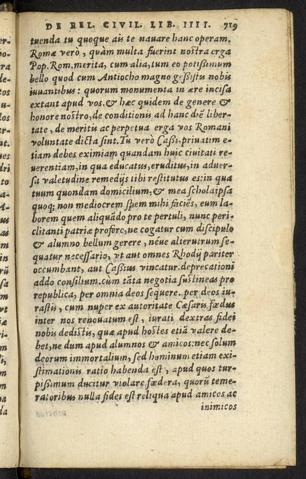 DE BEL. CIVIL. LIB. IIII. 719
tuenda tu quoque ais te nauare hanc operam,
Romæ verò, quàm multa fuerint nostra erga
Pop. Rom. merita, cum alia, tum eo potißimum
bello quod cum Antiocho magno geßistu nobis
iuuantibus: quorum monumenta in ære incisa
extant apud vos. & hæc quidem de genere &
honore nostro, de conditionis ad hanc diē liber-
tate, de meritis ac perpetua erga vos Romani
voluntate dicta sint. Tu verò Caßi priuatim e-
tiam debes eximiam quandam huic ciuitati re-
uerentiam, in qua educatus, eruditus, in aduer-
sa valetudine remedijs tibi restitutus es: in qua
tuum quondam domicilium, & mea schola ipsa
quoq; non mediocrem spem mihi faciēs, eum la-
borem quem aliquādo pro te pertuli, nunc peri-
clitanti patriæ profère, ne cogatur cum discipulo
& alumno bellum gerere, néue alterutrum se-
quatur necessario, vt aut omnes Rhodij pariter
occumbant, aut Caßius vincatur. deprecationi
addo consilium. cum tāta negotia sustineas pro
republica, per omnia deos sequere. per deos iu-
rastis, cum nuper ex autoritate Cæsaris fœdus
inter nos renouatum est, iurati dextras fidei
nobis dedistis, quæ apud hostes etiā valere de-
bet, ne dum apud alumnos & amicos: nec solùm
deorum immortalium, sed hominum etiam exi-
stimationis ratio habenda est, apud quos tur-
pißimum ducitur violare fœdera, quorū teme-
ratoribus nulla fides est reliqua apud amicos ac
inimicos